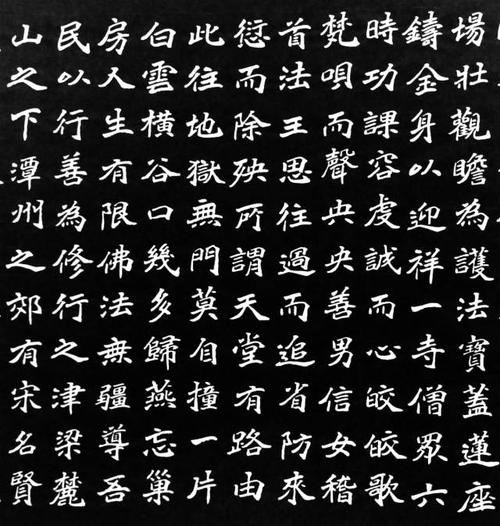 場壯觀瞻為護法寶蓋蓮座
鑄金身以迎祥一寺僧眾六
時功課容虔誠而心皎皎歌
梵唄而聲央央善男信女稽
首法王思往過而追省防來
愆而除殃所謂天堂有路由
此往地獄無門莫自撞一片
白雲橫谷口幾多歸燕忘巢
房人生有限佛法無疆導吾
民以行善為修行之津梁麓
山之下潭州之郊有宋名賢